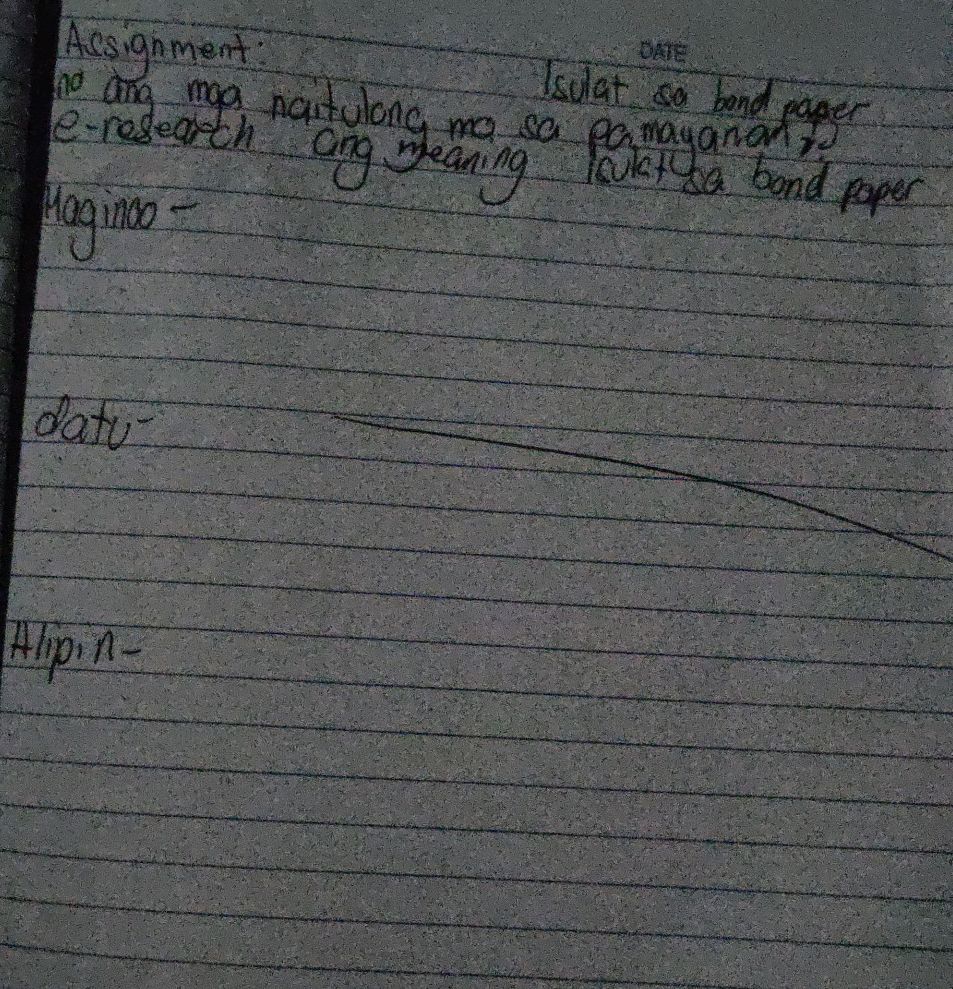 Assignment:
DATE
Isulat sa bond paper
no ang mga naitulong mo sa pamayanan??
e-research ang meaning Isulat sa bond paper
Maginoo -
datu -
Alipin -